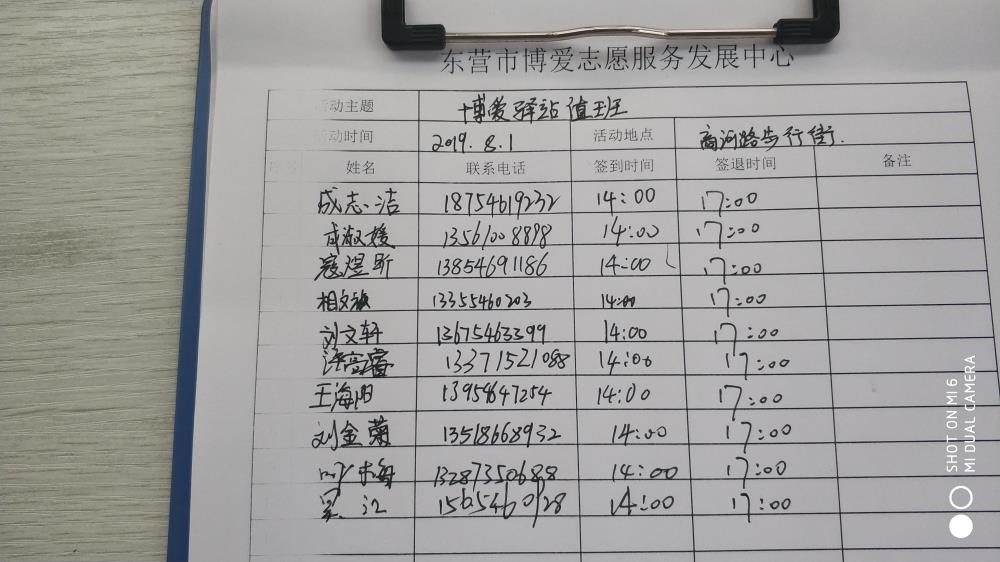 东营市博爱志愿服务发展中心
活动主题 博爱驿站值班
活动时间 2019.8.1 活动地点 商河路步行街.
序号 姓名 联系电话 签到时间 签退时间 备注
成志洁 18754619232 14:00 17:00
成淑媛 13561008898 14:00 17:00
寇煜昕 13854691186 14:00 17:00
相文放 13355460203 14:00 17:00
刘文轩 13675463399 14:00 17:00
许高富 13371521088 14:00 17:00
王海阳 13954647254 14:00 17:00
刘金菊 13518668932 14:00 17:00
13287350688 14:00 17:00
吴江 14:00 17:00
SHOT ON MI 6
MI DUAL CAMERA